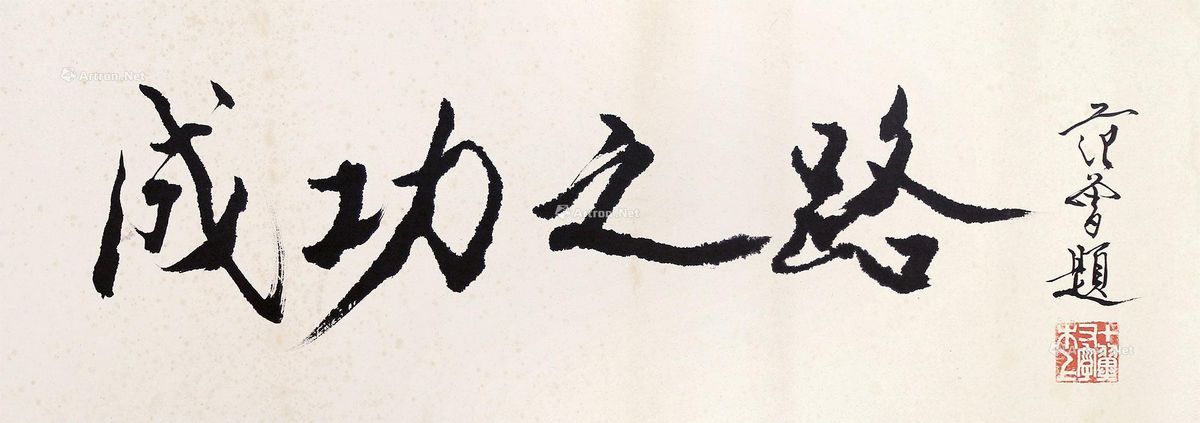 成功之路
范曾題
Artron.Net
Artron.Net
Artron.Net